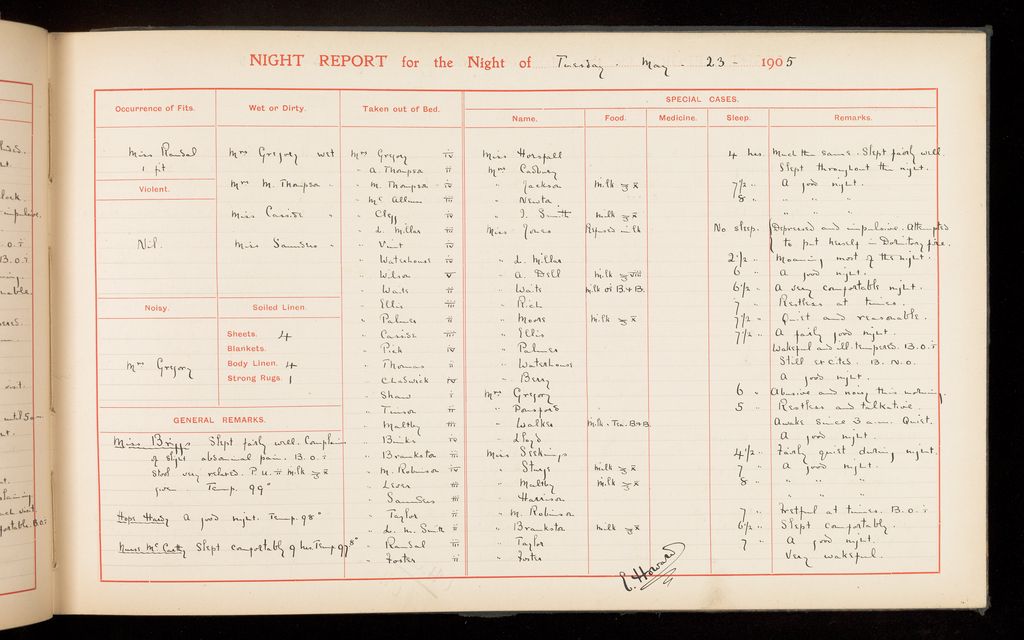 NIGHT REPORT for the Night of Tuesday. May - 23 - 1905
Occurrence of Fits.
Miss Randal
1 fit
Violent.
Nil.
Noisy.
Mrs Gregory
Wet or Dirty.
Mrs Gregory wet
Mrs M. Thompson "
Miss Casside "
Miss Saunders "
Soiled Linen
Sheets. 4
Blankets.
Body Linen. 4
Strong Rugs. 1
GENERAL REMARKS.
Miss Briggs Slept fairly well. Complains
of slight abdominal pain. B.O. i
Stool very relaxed. P.U. ii milk ℥ x
given. Temp. 99°
Hope Hardy A good night. Temp. 98°
Nurse McCarthy Slept comfortably 9 hrs Temp 97.8°
Taken out of Bed.
Mrs Gregory iv
" A. Thompson ii
" M. Thompson iv
" McAllum iii
" Clegg iv
" L. Miller iii
" Vint iv
" Waterhouse iv
" Wilson v
" Waits ii
" Ellis iii
" Palmer ii
" Casside iii
" Pick iv
" Thomas ii
" Chadwick iv
" Shaw i
" Tunson ii
" Maltby iii
" Binks iv
" Brankston ii
" M. Robinson iv
" Lever iii
" Saunders iii
" Taylor ii
" L. M. Smith ii
" Randal iii
" Foster ii
SPECIAL CASES.
Name. Food. Medicine. Sleep. Remarks.
Miss Horsfall 4 hrs. Much the same. Slept fairly well.
Mrs Cadbury Slept throughout the night.
" Jackson milk ℥ x 7½ " A good night.
" Newton 8 " " " "
" J. Smith milk ℥ x " " "
Miss Jones Refused milk No sleep. Depressed and impulsive. Attempted
to put herself in Dormitory fire.
" L. Miller 2½ " Moaning most of the night.
" A. Dell milk ℥ viii 6 " A good night.
" Waits milk or B.&B. 6½ " A very comfortable night.
" Rich 7 " Restless at times.
" Moore milk ℥ x 7½ " Quiet and reasonable.
" Ellis 7½ " A fairly good night.
" Palmer Wakeful and ill-tempered. B.O. i
" Waterhouse Still excited. B.N.O.
" Berry A good night.
Mrs Gregory 6 " Abusive and noisy this morning.
" Ponsford 5 " Restless and talkative.
" Walker Milk. Tea. B&B. Awake since 3 a.m. Quiet.
" Lloyd A good night.
Miss Seekings 4½ " Fairly quiet during night.
" Sturge milk ℥ x 7 " A good night.
" Maltby milk ℥ x 8 " " " "
" Harrison " " "
" M. Robinson 7 " Fretful at times. B.O. i
" Brankston milk ℥ x 6½ " Slept comfortably.
" Taylor 7 " A good night.
" Foster Very wakeful.
E. Howard